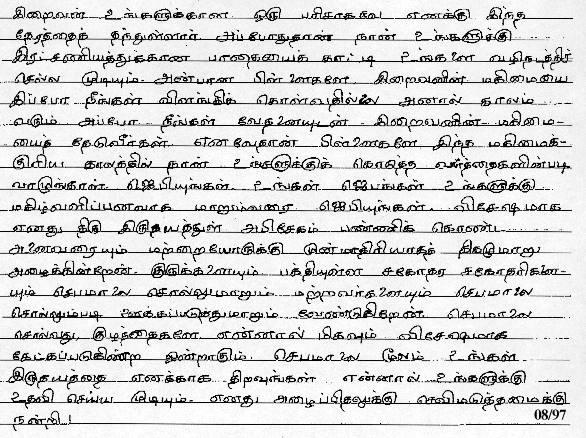 இறைவன் உங்களுக்கான ஒரு பரிசாகவே எனக்கு இந்த
நேரத்தைத் தந்துள்ளார். அப்போதுதான் நான் உங்களுக்கு
இரட்சணியத்துக்கான பாதையைக் காட்டி உங்களை வழிநடத்திச்
செல்ல முடியும். அன்பான பிள்ளைகளே. இறைவனின் மகிமையை
இப்போ நீங்கள் விளங்கிக் கொள்வதில்லை ஆனால் காலம்
வரும் அப்போ நீங்கள் வேதனையுடன் இறைவனின் மகிமை-
யைத் தேடுவீர்கள். எனவேதான் பிள்ளைகளே இந்த மகிமைக்-
குரிய காலத்தில் நான் உங்களுக்குக் கொடுத்த வார்த்தைகளின்படி
வாழுங்கள். ஜெபியுங்கள். உங்கள் ஜெபங்கள் உங்களுக்கு
மகிழ்வளிப்பனவாக மாறும்வரை ஜெபியுங்கள். விசேஷமாக
எனது திரு இருதயத்துள் அபிசேகம் பண்ணிக் கொண்ட
அனைவரையும் மற்றையோருக்கு முன்மாதிரியாகத் திகழுமாறு
அழைக்கின்றேன். குருக்களையும் பக்தியுள்ள சகோதர சகோதரிகளை-
யும் செபமாலை சொல்லுமாறும் மற்றவர்களையும் செபமாலை
சொல்லும்படி ஊக்கப்படுத்துமாறும் வேண்டுகிறேன். செபமாலை
சொல்வது, குழந்தைகளே. என்னால் மிகவும் விசேஷமாக
கேட்கப்படுகின்ற ஒன்றாகும். செபமாலை மூலம் உங்கள்
இருதயத்தை எனக்காக திறவுங்கள் என்னால் உங்களுக்கு
உதவி செய்ய முடியும். எனது அழைப்பிதலுக்கு செவிமடுத்தமைக்கு
நன்றி!
08/97